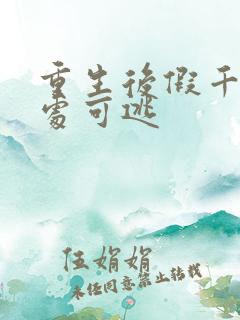 重生後假千
處可逃
伍娟娟
未任同意禁止转载